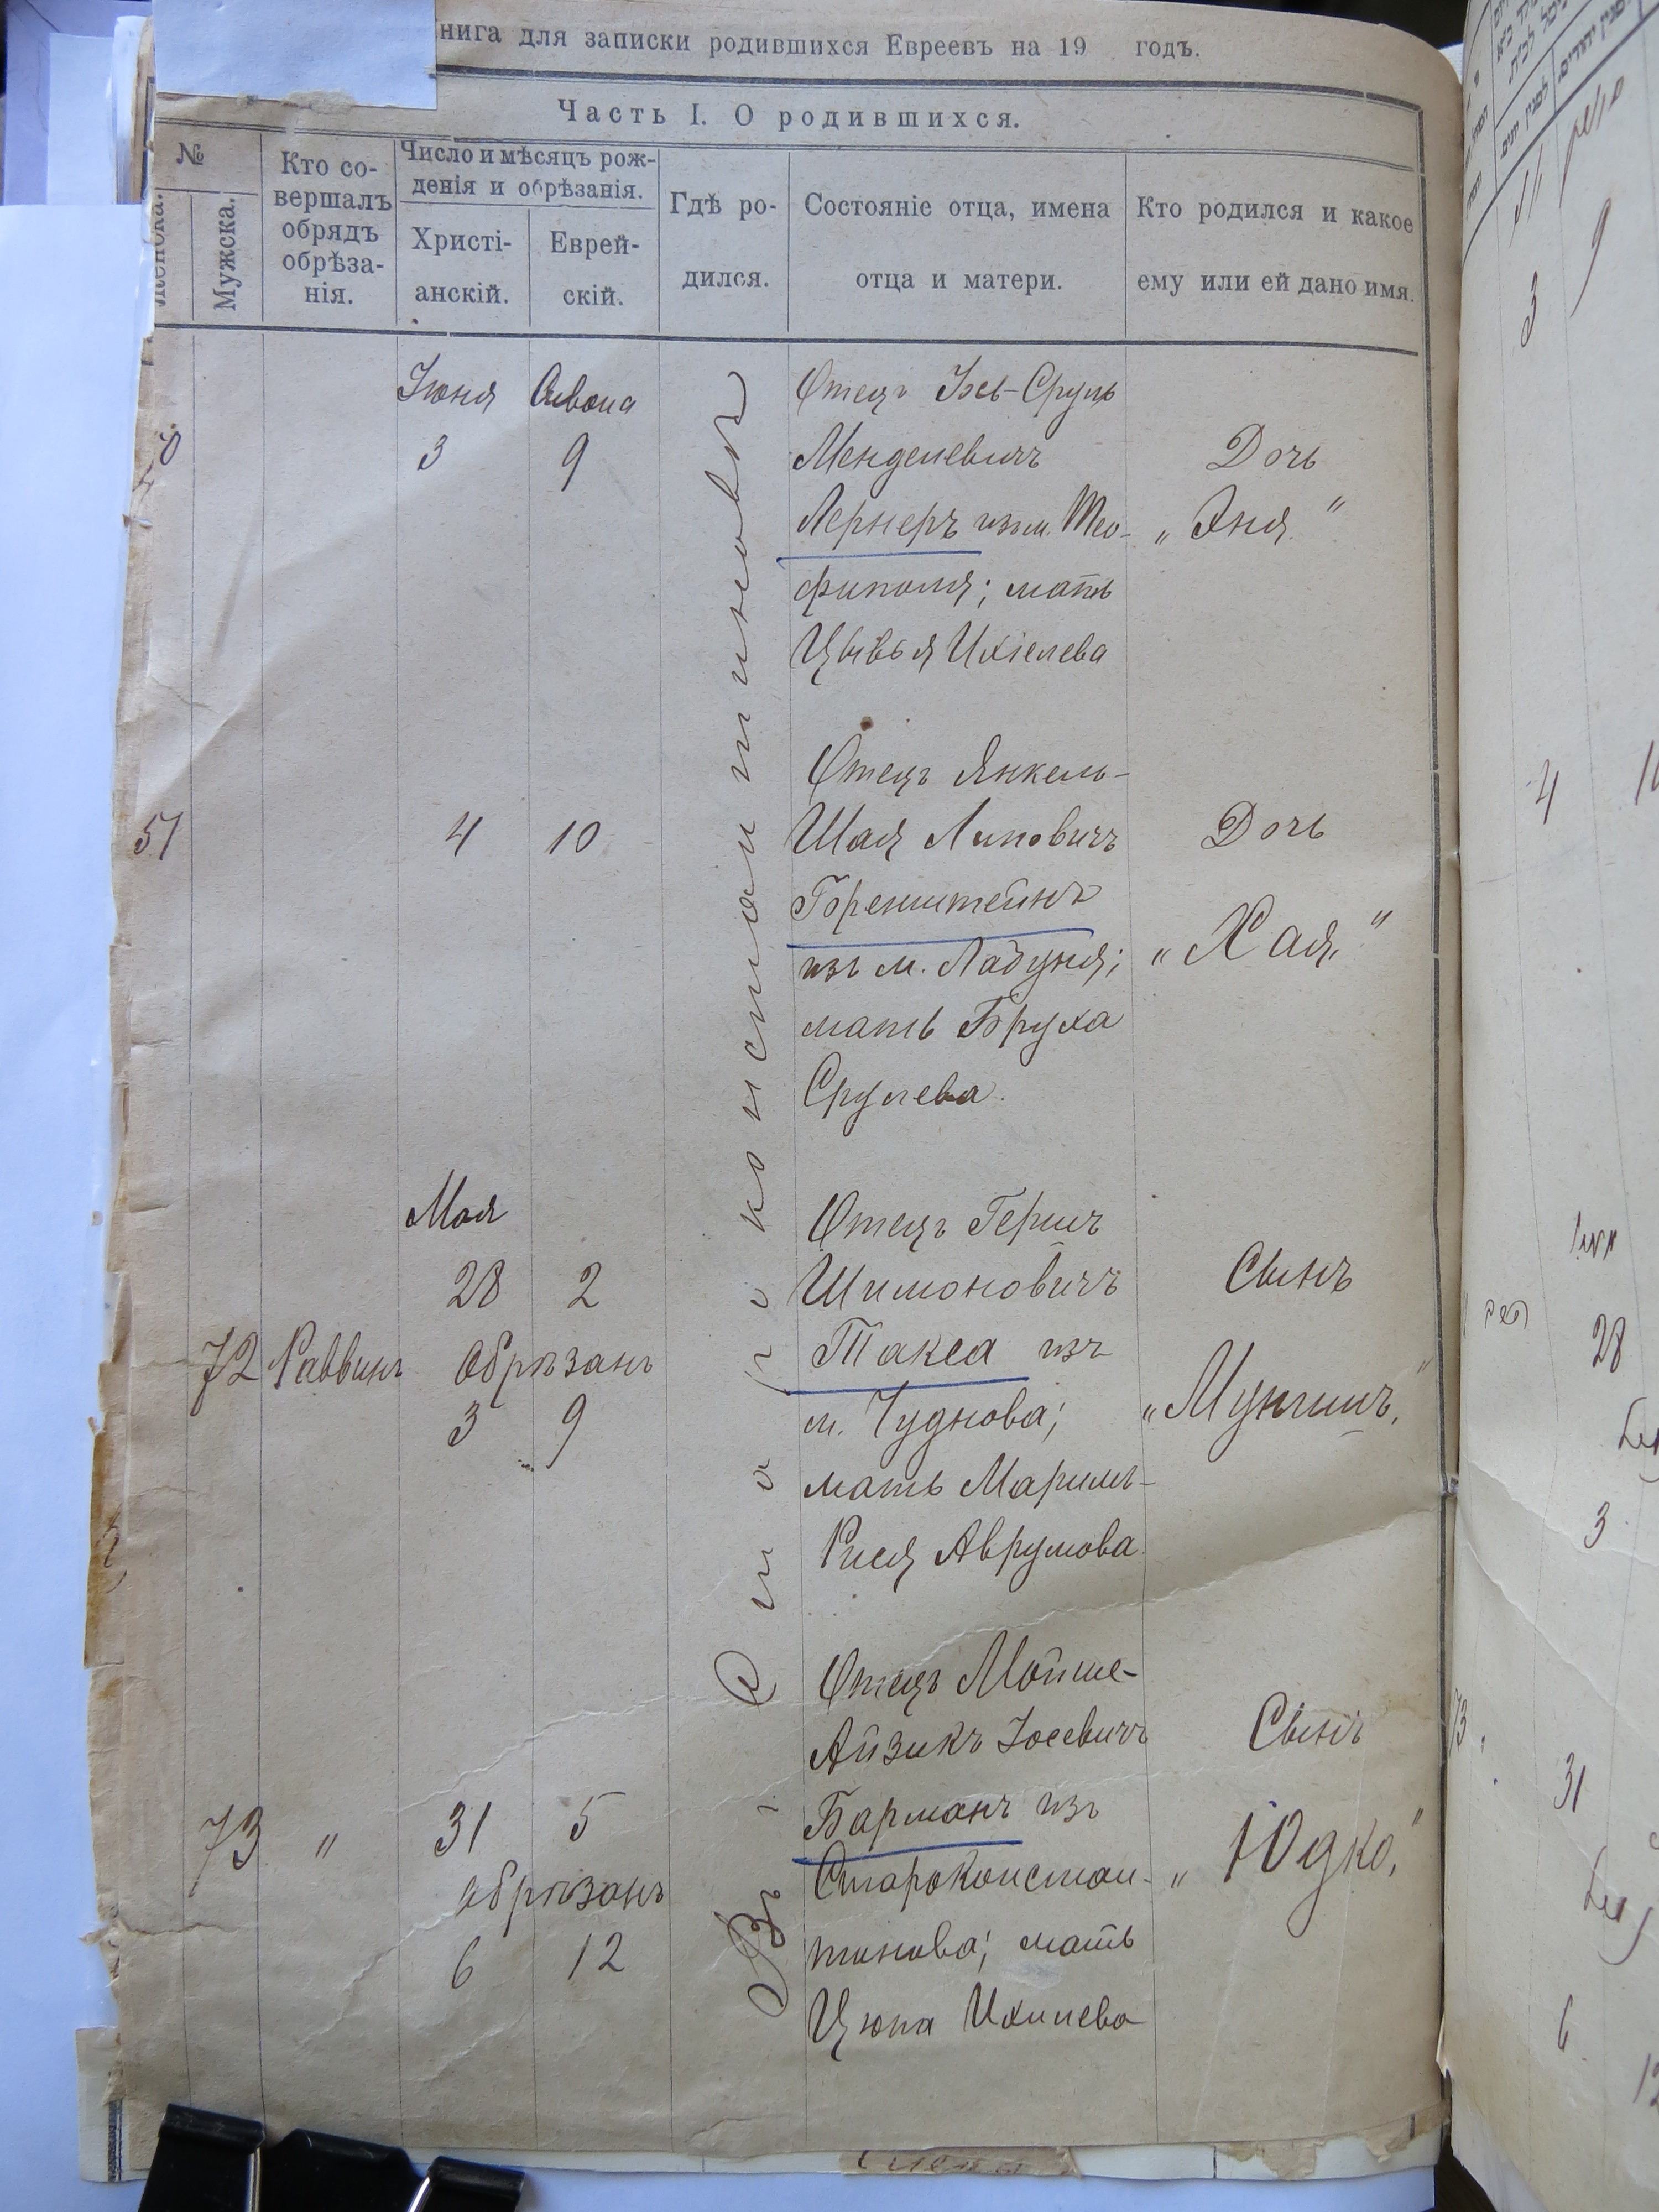 нига для записки родившихся Евреевъ на 19 годъ.
Часть I. О родившихся.
№
Мужска.
Кто со-
вершалъ
обрядъ
обрѣза-
нія.
Число и мѣсяцъ рож-
денія и обрѣзанія.
Христі-
анскій.
Еврей-
скій.
Гдѣ ро-
дился.
Состояніе отца, имена
отца и матери.
Кто родился и какое
ему или ей дано имя.
Въ Старо константиновѣ
Іюня Сивона
3 9
Отецъ Іось-Сруль
Менделевичъ
Лернеръ изъ м. Тео-
фиполя; мать
Цывья Ихіелева
Дочь
„Эня."
51 4 10
Отецъ Янкель-
Шая Липовичъ
Боренштейнъ
изъ м. Лабуня;
мать Бруха
Срулева.
Дочь
„Хая"
Мая
28 2
72 Раввинъ Обрѣзанъ
3 9
Отецъ Гершъ
Шимоновичъ
Такса изъ
м. Чуднова;
мать
Рися Аврумова
Сынъ
73 " 31 5
обрѣзанъ
6 12
Отецъ Мойше-
Айзикъ Іосевичъ
Барманъ изъ
Староконстан-
тинова; мать
Ихилева
Сынъ
„Юдко"
3 9
4
28
3
31
6